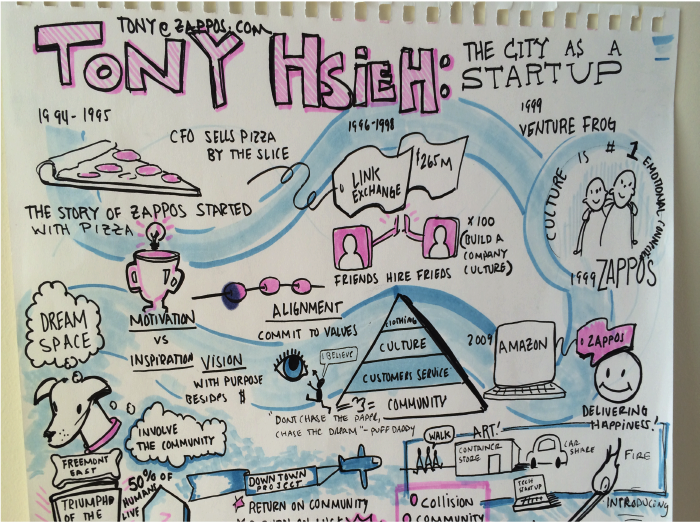 TONY@ZAPPOS.COM
TONY HSIEH:
THE CITY AS A
STARTUP
1994-1995
CFO SELLS PIZZA
BY THE SLICE
THE STORY OF ZAPPOS STARTED
WITH PIZZA
1996-1998
LINK
EXCHANGE
$265M
FRIENDS HIRE FRIEDS
X100
(BUILD A
COMPANY
CULTURE)
1999
VENTURE FROG
CULTURE IS #1
EMOTIONAL
1999 ZAPPOS
DREAM
SPACE
MOTIVATION
VS
INSPIRATION
ALIGNMENT
COMMIT TO VALUES
VISION
WITH PURPOSE
BESIDES $
I BELIEVE
CLOTHING
CULTURE
CUSTOMERS SERVICE
COMMUNITY
"DONT CHASE THE PAPER,
CHASE THE DREAM" - PUFF DADDY
2009
AMAZON
ZAPPOS
DELIVERING
HAPPINESS!
INVOLVE
THE COMMUNITY
FREEMONT
EAST
50% OF
HUMANS
LIVE
TRIUMPH
OF THE
DOWNTOWN
PROJECT
RETURN ON COMMUNITY
WALK
ART!
CONTAINER
STORE
CAR
SHARE
TECH
STARTUP
FIRE
INTRODUCING
COLLISION
COMMUNITY